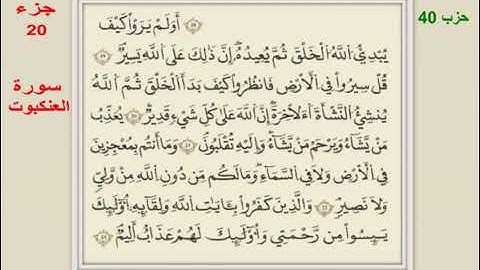 جزء
20
حزب 40
سورة
العنكبوت
أَوَلَمْ يَرَوْا كَيْفَ
يُبْدِئُ اللَّهُ الْخَلْقَ ثُمَّ يُعِيدُهُ إِنَّ ذَلِكَ عَلَى اللَّهِ يَسِيرٌ
قُلْ سِيرُوا فِي الْأَرْضِ فَانظُرُوا كَيْفَ بَدَأَ الْخَلْقَ ثُمَّ اللَّهُ
يُنشِئُ النَّشْأَةَ الْآخِرَةَ إِنَّ اللَّهَ عَلَى كُلِّ شَيْءٍ قَدِيرٌ يُعَذِّبُ
مَن يَشَاءُ وَيَرْحَمُ مَن يَشَاءُ وَإِلَيْهِ تُقْلَبُونَ وَمَا أَنتُم بِمُعْجِزِينَ
فِي الْأَرْضِ وَلَا فِي السَّمَاءِ وَمَا لَكُم مِّن دُونِ اللَّهِ مِن وَلِيٍّ
وَلَا نَصِيرٍ وَالَّذِينَ كَفَرُوا بِآيَاتِ اللَّهِ وَلِقَائِهِ أُوْلَئِكَ
يَئِسُوا مِن رَّحْمَتِي وَأُوْلَئِكَ لَهُمْ عَذَابٌ أَلِيمٌ